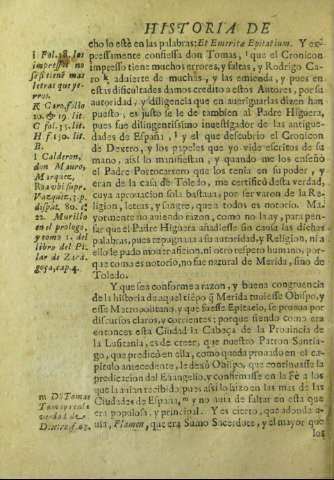 HISTORIA DE
cho lo estè en las palabras: Et Emeritæ Epitatium. Y ex-
pressamente confiessa don Tomas, i que el Cronicon
impresso tiene muchos errores, y faltas, y Rodrigo Ca-
ro k aduierte de muchas, y las emienda, y pues en
estas dificultades damos credito a estos Autores, por su
autoridad, y diligencia que en aueriguarlas dizen han
puesto, es justo se le de tambien al Padre Higuera,
pues fue diligentissimo inuestigador de las antigue-
dades de España, l y el que descubrio el Cronicon
de Dextro, y los papeles que yo vide escritos de su
mano, assi lo manifiestan, y quando me los enseñò
el Padre Portocarrero que los tenia en su poder, y
eran de la casa de Toledo, me certificò desta verdad,
cuya aprouacion sola bastaua; por ser varon de la Re-
ligion, letras, y sangre, que a todos es notorio. Ma-
yormente no auiendo razon, como no la ay, para pen-
sar que el Padre Higuera añadiesse sin causa las dichas
palabras, pues repugnaua a su autoridad, y Religion, ni a
ello le pudo mouer aficion, ni otro respeto humano, por-
que como es notorio, no fue natural de Merida, sino de
Toledo.
Y que sea conforme a razon, y buena congruencia
de la historia de aquel tiẽpo q̃ Merida tuuiesse Obispo, y
esse Metropolitano, y que fuesse Epitacio, se prueua por
discursos claros, y corrientes; porque siendo como era
entonces esta Ciudad la Cabeça de la Prouincia de
la Lusitania, es de creer, que nuestro Patron Santia-
go, que predicò en ella, como queda prouado en el ca-
pitulo antecedente, le dexò Obispo, que continuasse la
predicacion del Euangelio, y confirmasse en la Fè a los
que la auian recibido, pues assi lo hizo en las mas de las
Ciudades de España, m y no auia de faltar en esta que
era populosa, y principal. Y es cierto, que adonde a-
uia, Flamen, que era Sumo Sacerdote, y el mayor que
los
i Fol. 38. los
impressos no
se si tiene mas
letras que ye-
rros.
K Caro, folio
20. & 19. lit.
C. fol. 35. lit.
H. f. 150. lit.
B.
l Calderon,
don Mauro,
Marquez,
Roa vbi supr.
Vazquez, 3. p.
disput. 80. n.
22. Murillo
en el prologo,
y tomo 1. del
libro del Pi-
lar de Zara-
goça, cap. 4.
m D. Tomas
Tamayo en la
verdad de
Dextro, f. 67.